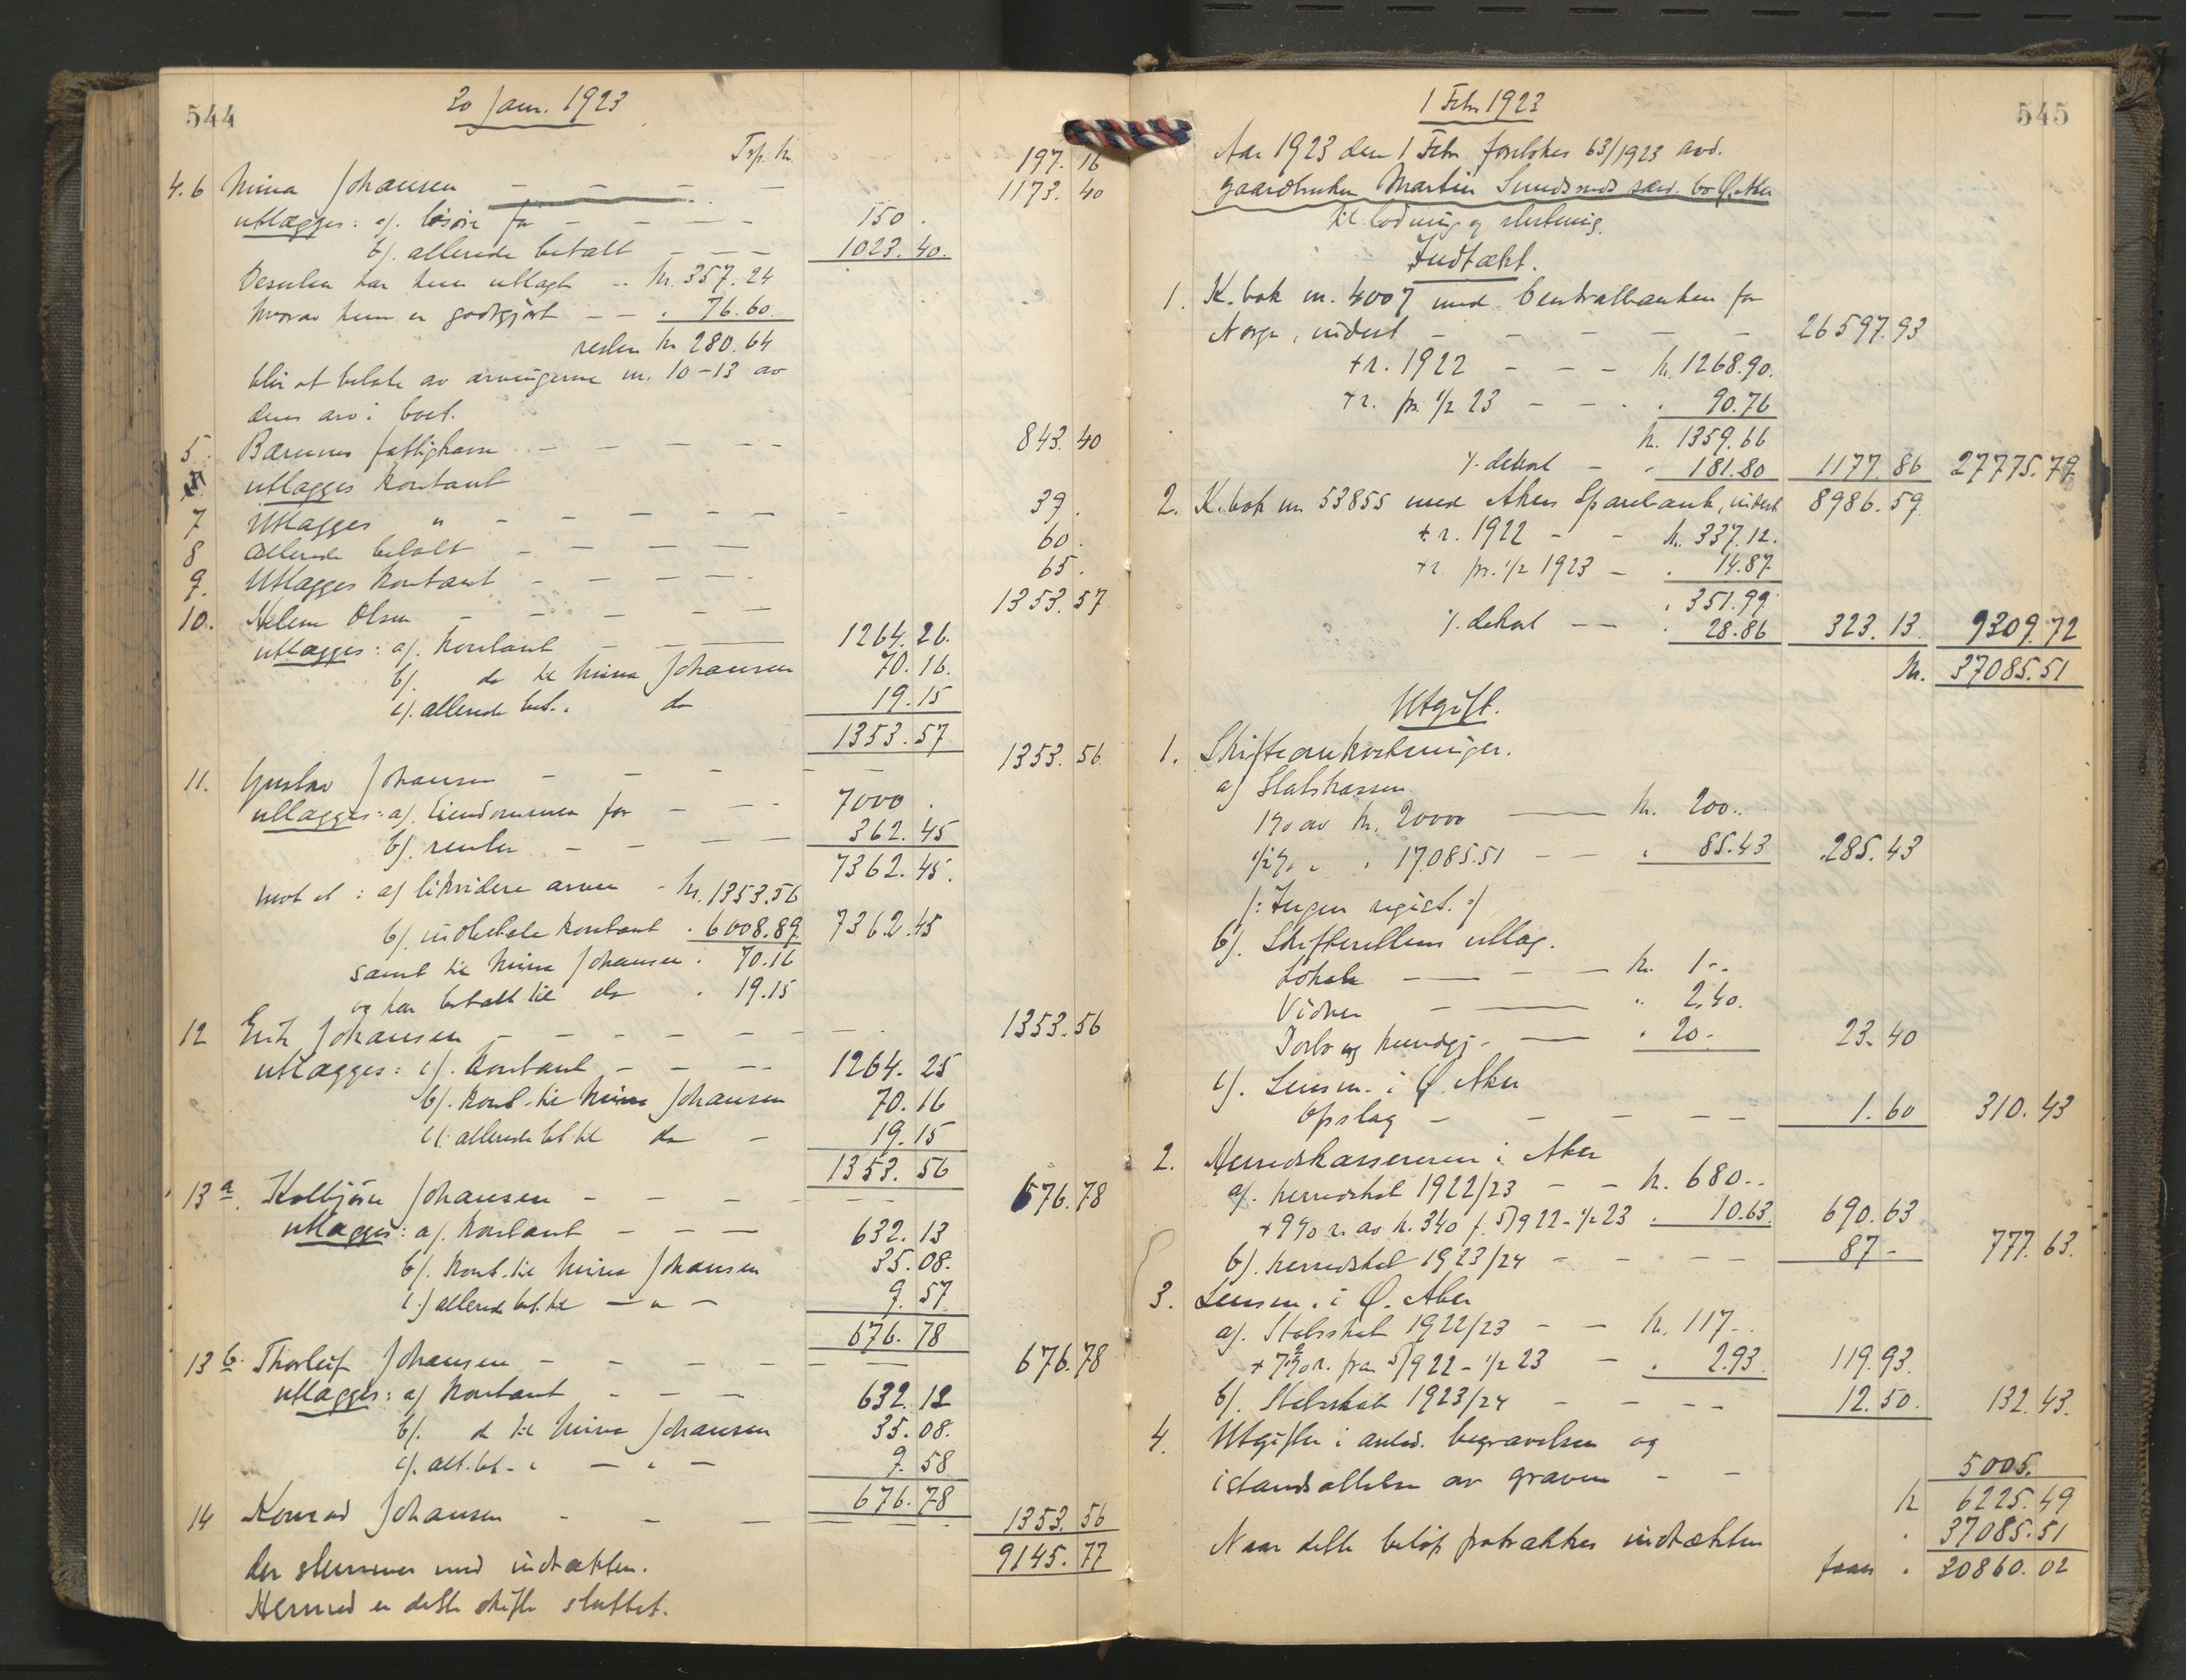 544
20 Jan. 1923
Trp. kr. 197.16
4.6 Mina Johansen - - - - 1173.40
utlægges: a/. løsöre for - - - - 150.
b/. allerede betalt - - - 1023.40.
Desuten har hun utlagt .. kr. 357.24
hvorav hun er godtgjort - - . 76.60
resten kr 280.64
blir at betale av arvingerne nr. 10-13 av
deres arv i boet.
5. Bærums fattigkasse - - - - - 843.40
utlægges kontant
7 Utlægges " - - - - - - 39.
8 allerede betalt - - - - 60.
9. Utlægges kontant - - - - 65.
10. Helene Olsen - - - - - 1353.57
utlægges: a/. kontant - - 1264.26.
b/. do til Mina Johansen 70.16.
c/. allerede bet. " do 19.15
1353.57
11. Gustav Johansen - - - - - 1353.56
utlægges: a/. Eiendommen for - - - 7000.
b/. renter - - - - 362.45
7362.45.
mot at: a/ likvidere arven - kr. 1353.56
b/. indbetale kontant . 6008.89 7362.45
samt til Mina Johansen . 70.16
og har betalt til do . 19.15
12 Erik Johansen - - - - - - - 1353.56
utlægges: a/. kontant - - - - 1264.25
b/. kont. til Mina Johansen 70.16
c/. allerede bet. til do - 19.15
1353.56
13 a. Kolbjörn Johansen - - - - - 676.78
utlægges: a/. kontant - - - 632.13
b/. kont. til Mina Johansen 35.08.
c./ allerede bet. til - " - 9.57
676.78
13 b. Thorleif Johansen - - - - - - 676.78
utlægges: a/ kontant - - - 632.12
b/. do til Mina Johansen 35.08.
c/. all. bet. - " - " - 9.58
676.78
14 Konrad Johansen - - - 1353.56
9145.77
der stemmer med indtækten.
Hermed er dette skifte sluttet.
545
1 Febr 1923
Aar 1923 den 1 Febr. foretokes 63/1923 avd.
gaardbruker Martin Sundsneds særd. bo Ø. Aker
til lodning og slutning.
Indtækt.
1. K. bok nr. 4007 med Centralbanken for
Norge, indest - - - - - - 26597.93
+ r. 1922 - - - kr. 1268.90.
+ r. pr. 1/2 23 - - - . 90.76
kr. 1359.66
÷ dekort - . 181.80 1177.86 27775.79
2. K. bok nr 53855 med Akers Sparebank, indest 8986.59
+ r. 1922 - - kr. 337.12.
+ r. pr. 1/2 1923 - . 14.87
. 351.99
÷ dekort - - . 28.86 323.13 9309.72
Kr. 37085.51
Utgift.
1. Skifteomkostninger.
a/ Statskassen
1% av kr. 20000 - kr. 200..
1/2% " . 17085.51 - - . 85.43 285.43
/: Ingen regist. :/
b/. Skifterettens utlæg.
Lokale - - - kr. 1-.
Vidner - - " 2.40.
Forb. og kundgj. - . 20.- 23.40
c/. Lensm. i Ø. Aker
Opslag - - - - - 1.60 310.43
2. Herredskassereren i Aker
a/. herredsskat 1922/23 - - kr. 680..
+ 9% r. av kr. 340 f. 5/9 22 - 1/2 23 . 10.63. 690.63
b/. herredsskat 1923/24 - - - - 87 - 777.63.
3. Lensm. i Ø. Aker
a/. Statsskat 1922/23 - - kr. 117-.
+ r. fra 5/9 22 - 1/2 23 - . 2.93. 119.93.
b/. Statsskat 1923/24 - - - - 12.50. 132.43.
4. Utgifter i anled. begravelsen og
istandsættelse av graven - - 5005.
kr 6225.49
Naar dette beløp fratrækkes indtækten . 37085.51
faaes . 30860.02